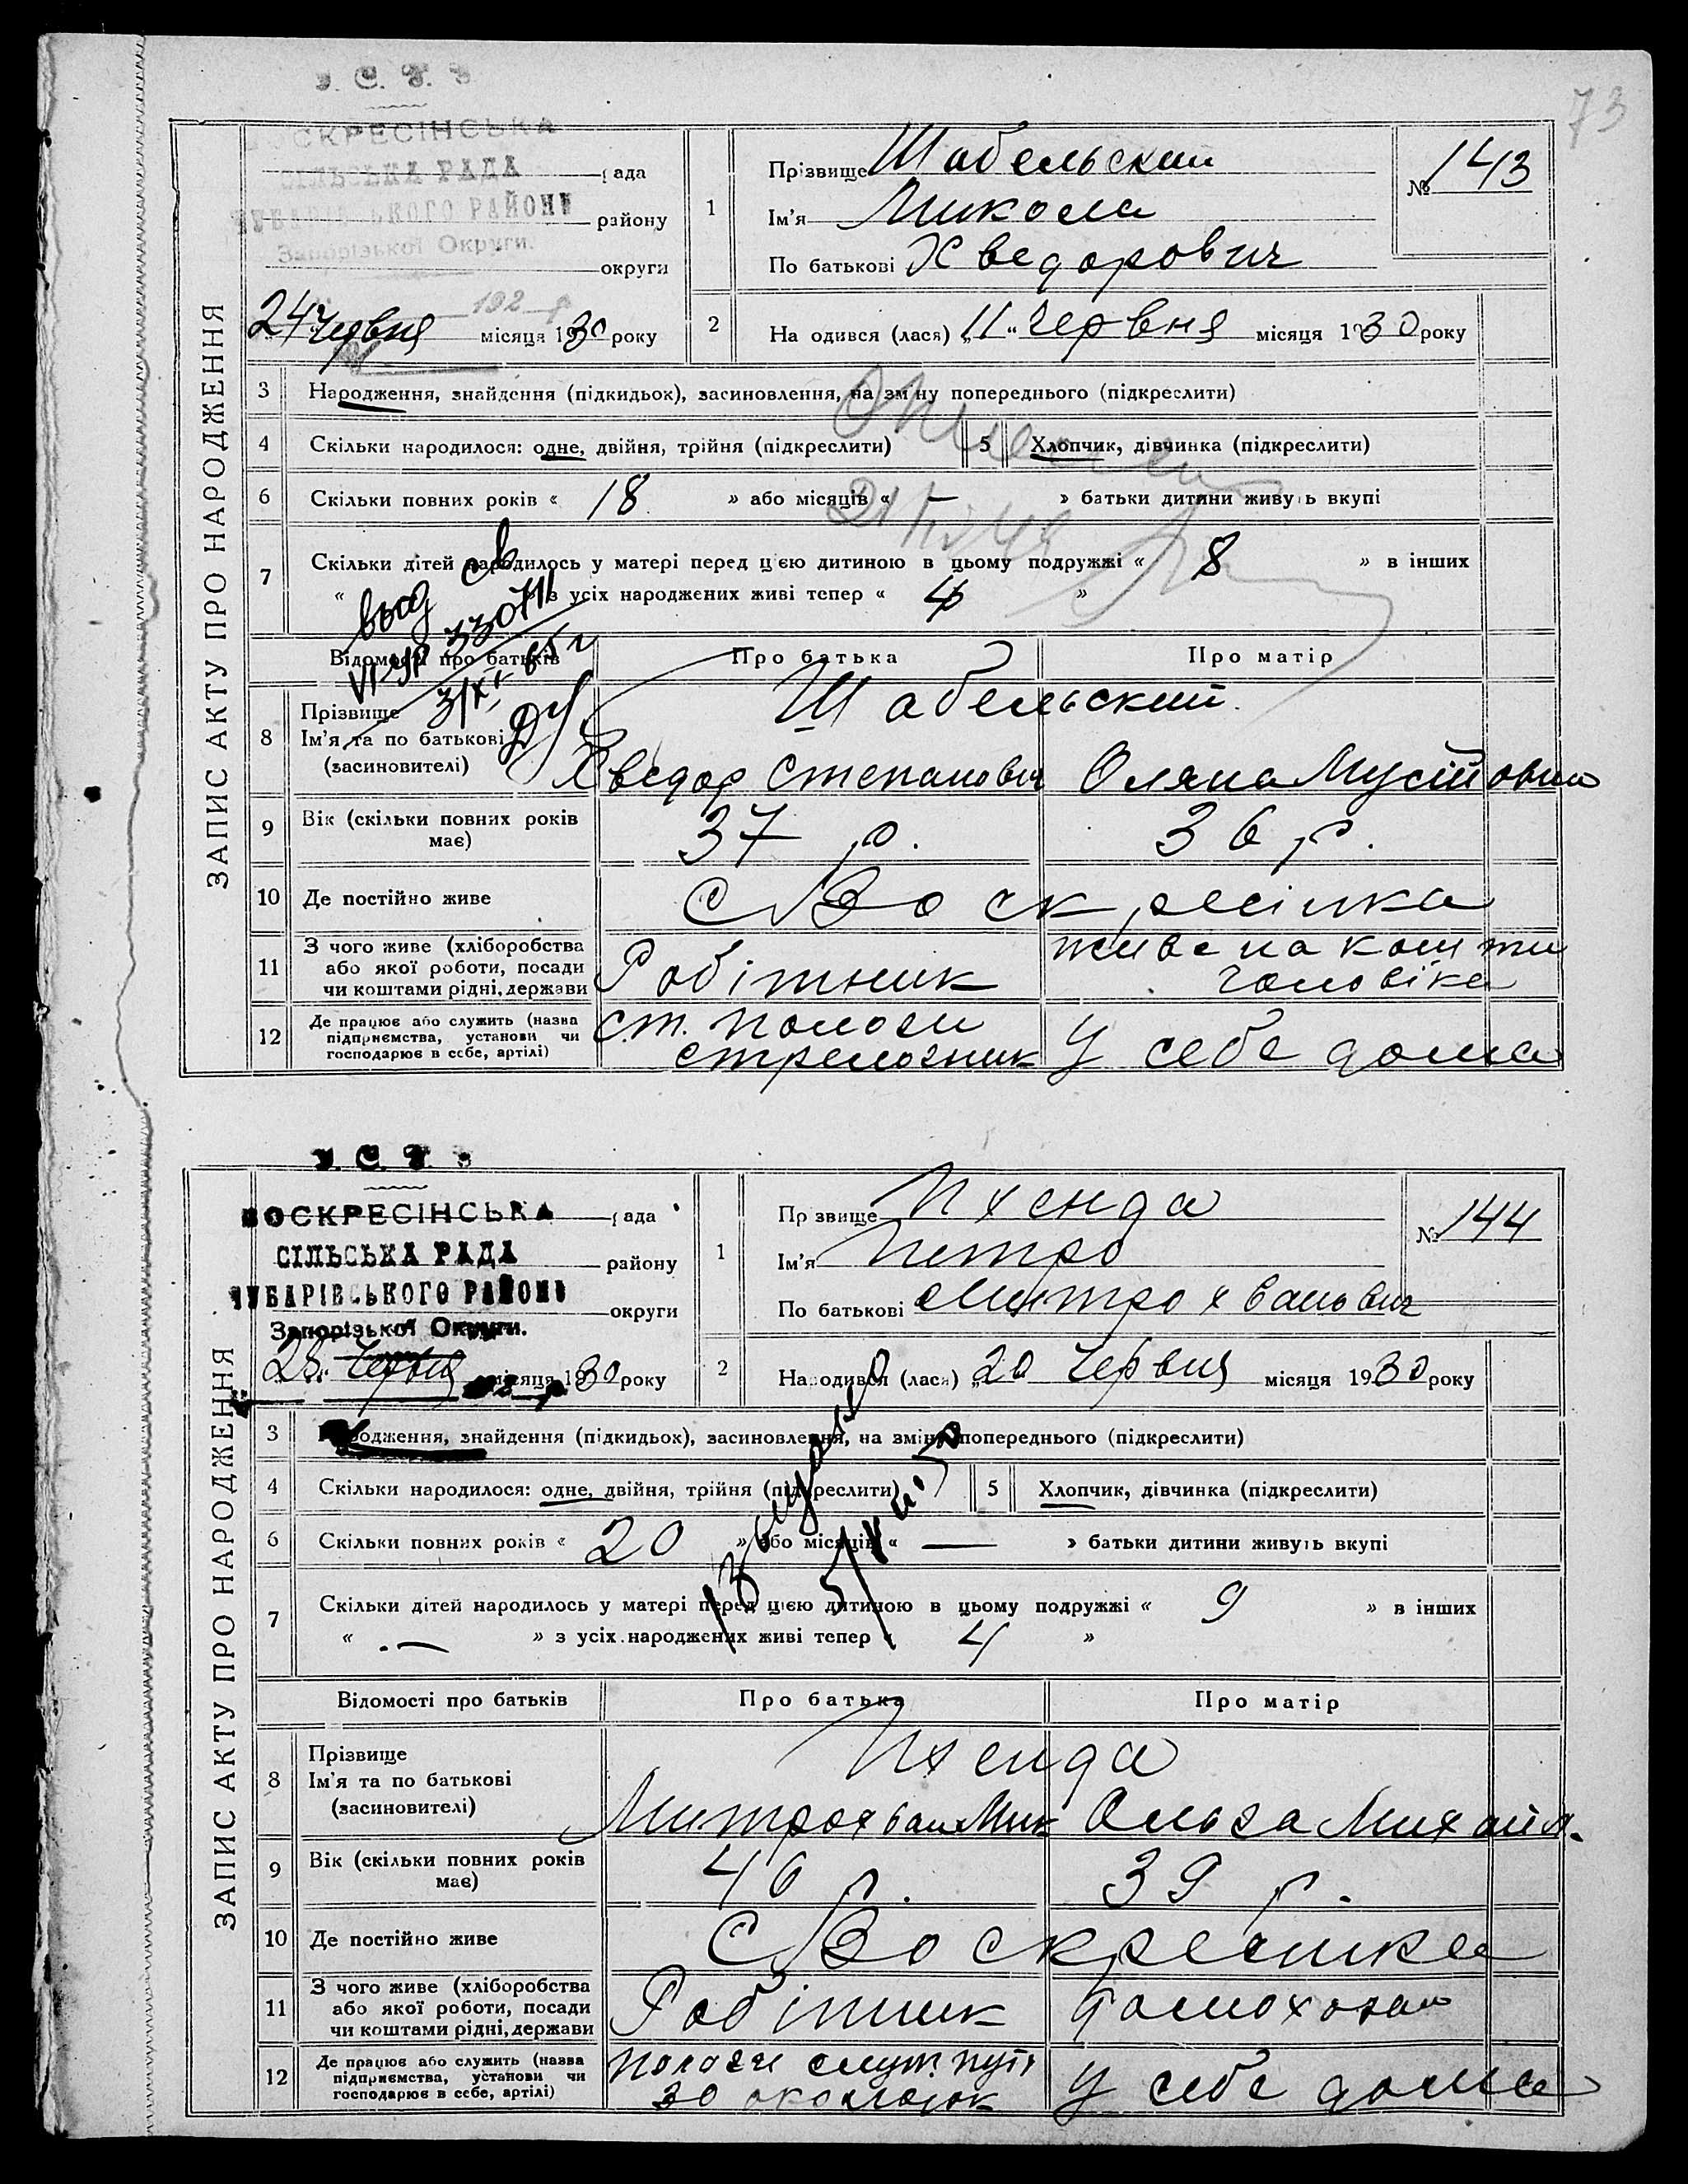 73
У. С. Р. Р.
ВОСКРЕСІНСЬКА
СІЛЬСЬКА РАДА рада
ЧУБАРІВСЬКОГО РАЙОНУ району
Запорізької Округи.
округи
192 р.
24 Червня місяця 1930 року
ЗАПИС АКТУ ПРО НАРОДЖЕННЯ
1 Прізвище Шабельский
№ 143
Ім'я Микола
По батькові Хведорович
2 На одився (лася) „11" Червня місяця 1930 року
3 Народження, знайдення (підкидьок), засиновлення, на зміну попереднього (підкреслити)
4 Скільки народилося: одне, двійня, трійня (підкреслити) 5 Хлопчик, дівчинка (підкреслити)
6 Скільки повних років « 18 » або місяців « — » батьки дитини живуть вкупі
7 Скільки дітей народилось у матері перед цією дитиною в цьому подружжі « 8 » в інших
« » з усіх народжених живі тепер « 4 »
выд св
330711
3/XI 65 г
Відомості про батьків Про батька Про матір
8 Прізвище
Ім'я та по батькові
(засиновителі)
Шабельский.
Хведор Степанович Оляна Мусійовна
9 Вік (скільки повних років має) 37 р. 36 р.
10 Де постійно живе С Воскресінка
11 З чого живе (хліборобства
або якої роботи, посади
чи коштами рідні, держави
Робітник
живе на кошти
чоловіка
12 Де працює або служить (назва
підприємства, установи чи
господарює в себе, артілі)
ст. Пологи
стрелочник
У себе дома
У. С. Р. Р.
ВОСКРЕСІНСЬКА рада
СІЛЬСЬКА РАДА району
ЧУБАРІВСЬКОГО РАЙОНУ округи
Запорізької Округи.
Червня місяця 1930 року
ЗАПИС АКТУ ПРО НАРОДЖЕННЯ
1 Пр звище Пхенда
№ 144
Ім'я Петро
По батькові Митрохванович
2 Народився (лася) „20 Червня місяця 1930 року
3 Народження, знайдення (підкидьок), засиновлення, на зміну попереднього (підкреслити)
4 Скільки народилося: одне, двійня, трійня (підкреслити) 5 Хлопчик, дівчинка (підкреслити)
6 Скільки повних років « 20 » або місяців « — » батьки дитини живуть вкупі
7 Скільки дітей народилось у матері перед цією дитиною в цьому подружжі « 9 » в інших
« — » з усіх народжених живі тепер « 4 »
Відомості про батьків Про батька Про матір
8 Прізвище
Ім'я та по батькові
(засиновителі)
Пхенда
Митрохван Мик Ольга Михайл.
9 Вік (скільки повних років має) 46 р. 39 р.
10 Де постійно живе С Воскресинка
11 З чого живе (хліборобства
або якої роботи, посади
чи коштами рідні, держави
Робітник
домохозяй
12 Де працює або служить (назва
підприємства, установи чи
господарює в себе, артілі)
Пологи служ. путі
30 околодок
У себе дома